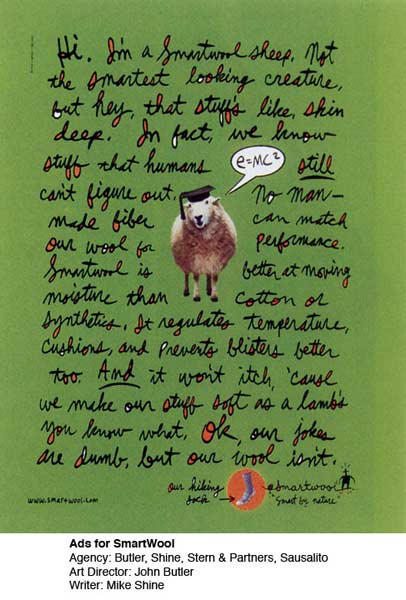 Hi. I'm a Smartwool sheep. Not
the smartest looking creature,
but hey, that stuff's like, skin
deep. In fact, we know
stuff that humans still
e=mc²
can't figure out. No man-
made fiber can match
our wool for performance.
Smartwool is better at moving
moisture than cotton or
synthetics. It regulates temperature,
cushions, and prevents blisters better
too. And it won't itch, 'cause
we make our stuff soft as a lamb's
you know what. Ok, our jokes
are dumb, but our wool isn't.
our hiking
sock →
smartwool
"smart by nature"
www.smartwool.com
Ads for SmartWool
Agency: Butler, Shine, Stern & Partners, Sausalito
Art Director: John Butler
Writer: Mike Shine